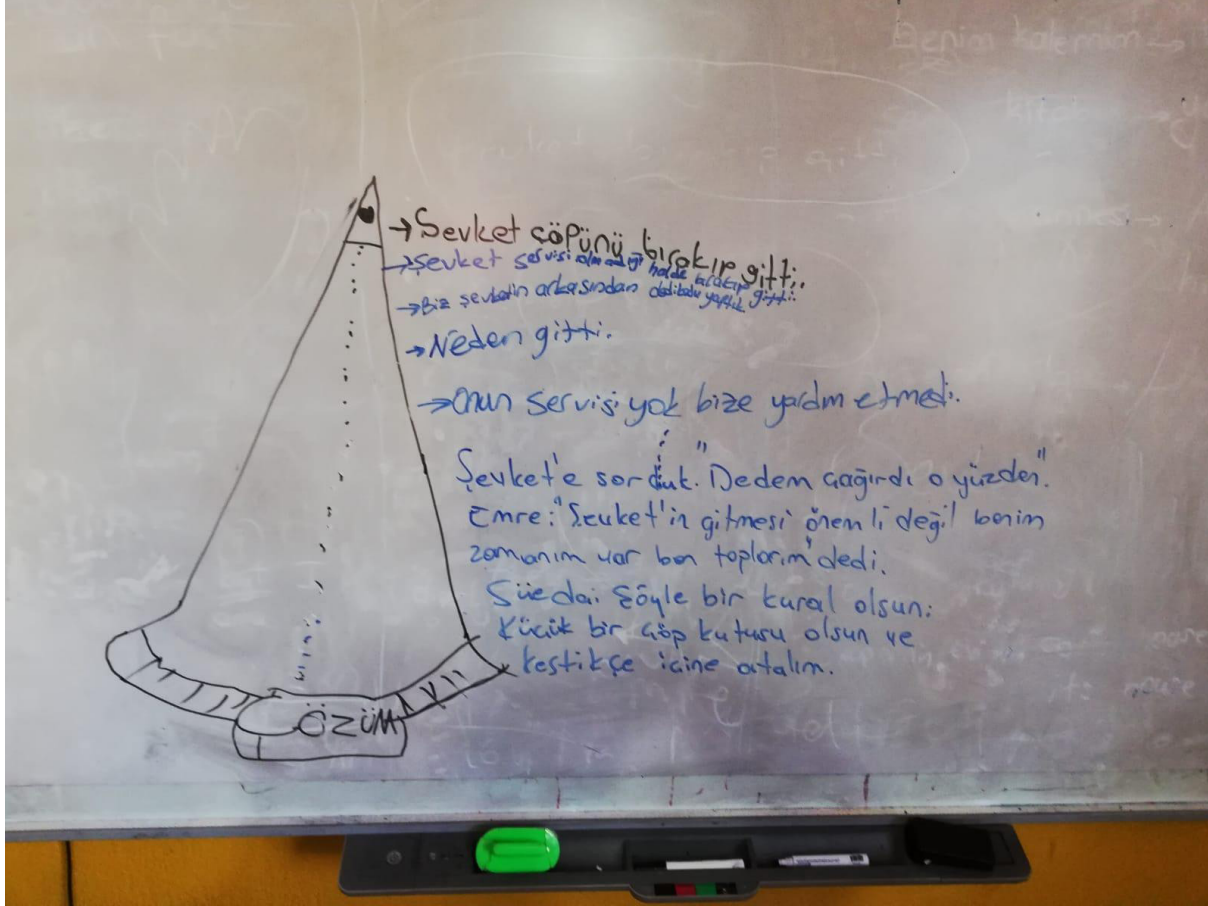 Benim kalemim →
→ Şevket çöpünü bırakıp gitti.
→ Şevket servisi olmadığı halde bırakıp gitti.
→ Biz şevketin arkasından dedikodu yaptık
→ Neden gitti.
→ Onun servisi yok bize yardım etmedi.
Şevket'e sorduk. "Dedem çağırdı o yüzden"
Emre: "Şevket'in gitmesi önemli değil benim
zamanım var ben toplarım" dedi.
Süeda: Şöyle bir kural olsun:
Küçük bir çöp kutusu olsun ve
kestikçe içine atalım.
ÇÖZÜM